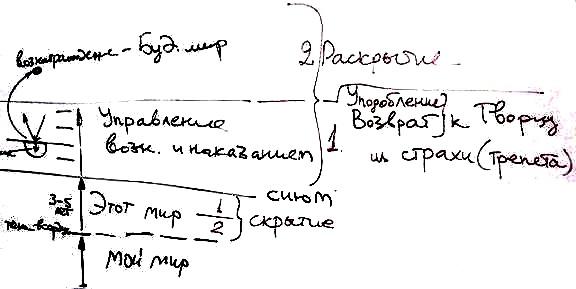 2 Раскрытие
вознагражден - Буд. мир
Уподобление
Возврат к Творцу
1. из страха (трепета)
Управление
возн. и наказанием
3-5 лет
Этот мир 1/2
сиюм
скрытие
точ. в сердце
Мой мир